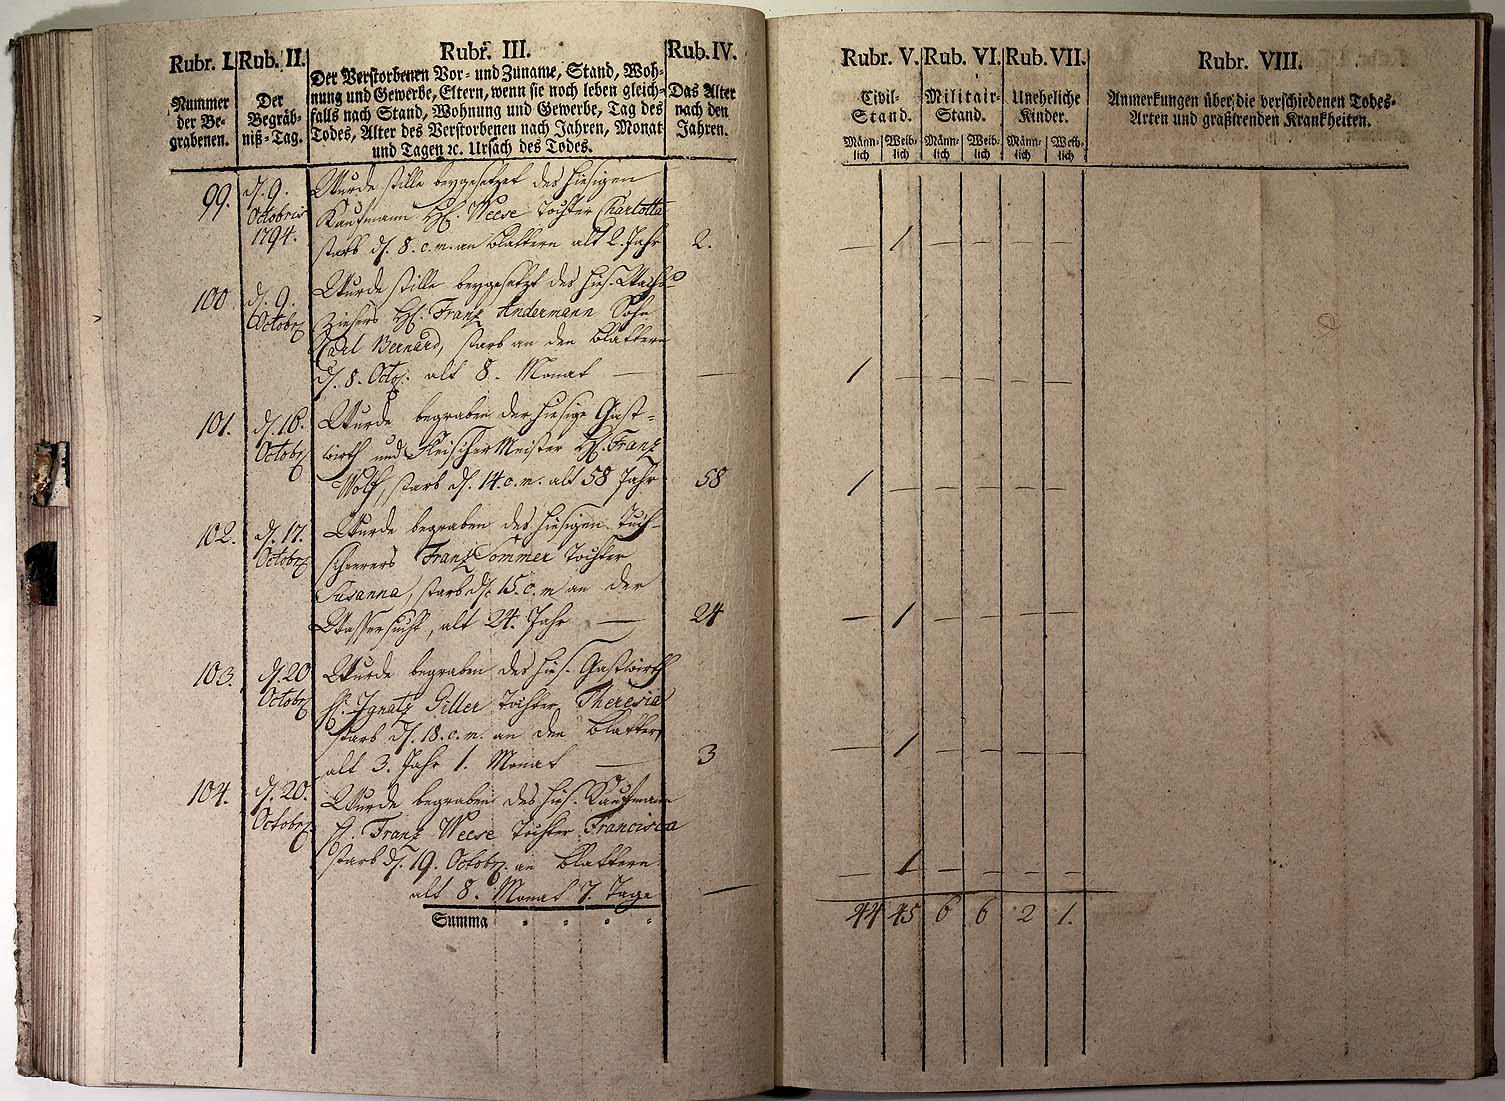 Rubr. I.
Nummer
der Be-
grabenen.
Rub. II.
Der
Begräb-
niß-Tag.
Rubr. III.
Der Verstorbenen Vor- und Zuname, Stand, Woh-
nung und Gewerbe, Eltern, wenn sie noch leben gleich-
falls nach Stand, Wohnung und Gewerbe, Tag des
Todes, Alter des Verstorbenen nach Jahren, Monat
und Tagen ꝛc. Ursach des Todes.
Rub. IV.
Das Alter
nach den
Jahren.
99.
d. 9.
Octobris
1794.
Wurde stille beygesetzet des hiesigen
Kaufmann H. Weese Tochter Charlotta
starb d. 8. c. m. an Blattern alt 2. Jahr
2.
100
d. 9.
Octobr
Wurde stille beygesetzt des hies. Wachs
Ziehers H. Franz Andermann Sohn
Carl Bernard, starb an den Blattern
d. 8. Octo. alt 8. Monat —
—
101.
d. 16.
Octobr
Wurde begraben der hiesige Gast-
wirth und Fleischer Meister H. Franz
Wolf, starb d. 14. c. m. alt 58 Jahr
58
102.
d. 17.
Octobr
Wurde begraben des hiesigen Tuch-
scheerers Franz Sommer Tochter
Susanna, starb d. 15. c. m an der
Wassersucht, alt 24. Jahr —
24
103.
d. 20
Octobr
Wurde begraben des hies. Gastwirth
H. Ignatz Giller Tochter Theresia
starb d. 18. c. m. an den Blattern
alt 3. Jahr 1. Monat —
3
104.
d. 20.
Octobr
Wurde begraben des hies. Kaufmann
H. Franz Weese Tochter Francisca
starb d. 19. Octobr. an Blattern
alt 8. Monat 7. Tage
—
Summa
Rubr. V.
Civil-
Stand.
Männ-
lich
Weib-
lich
Rub. VI.
Militair-
Stand.
Männ-
lich
Weib-
lich
Rub. VII.
Uneheliche
Kinder.
Männ-
lich
Weib-
lich
Rubr. VIII.
Anmerkungen über die verschiedenen Todes-
Arten und graßirenden Krankheiten.
— 1 — — — —
1 — — — — —
1 — — — — —
— 1 — — — —
— 1 — — — —
— 1 — — — —
44 45 6 6 2 1.